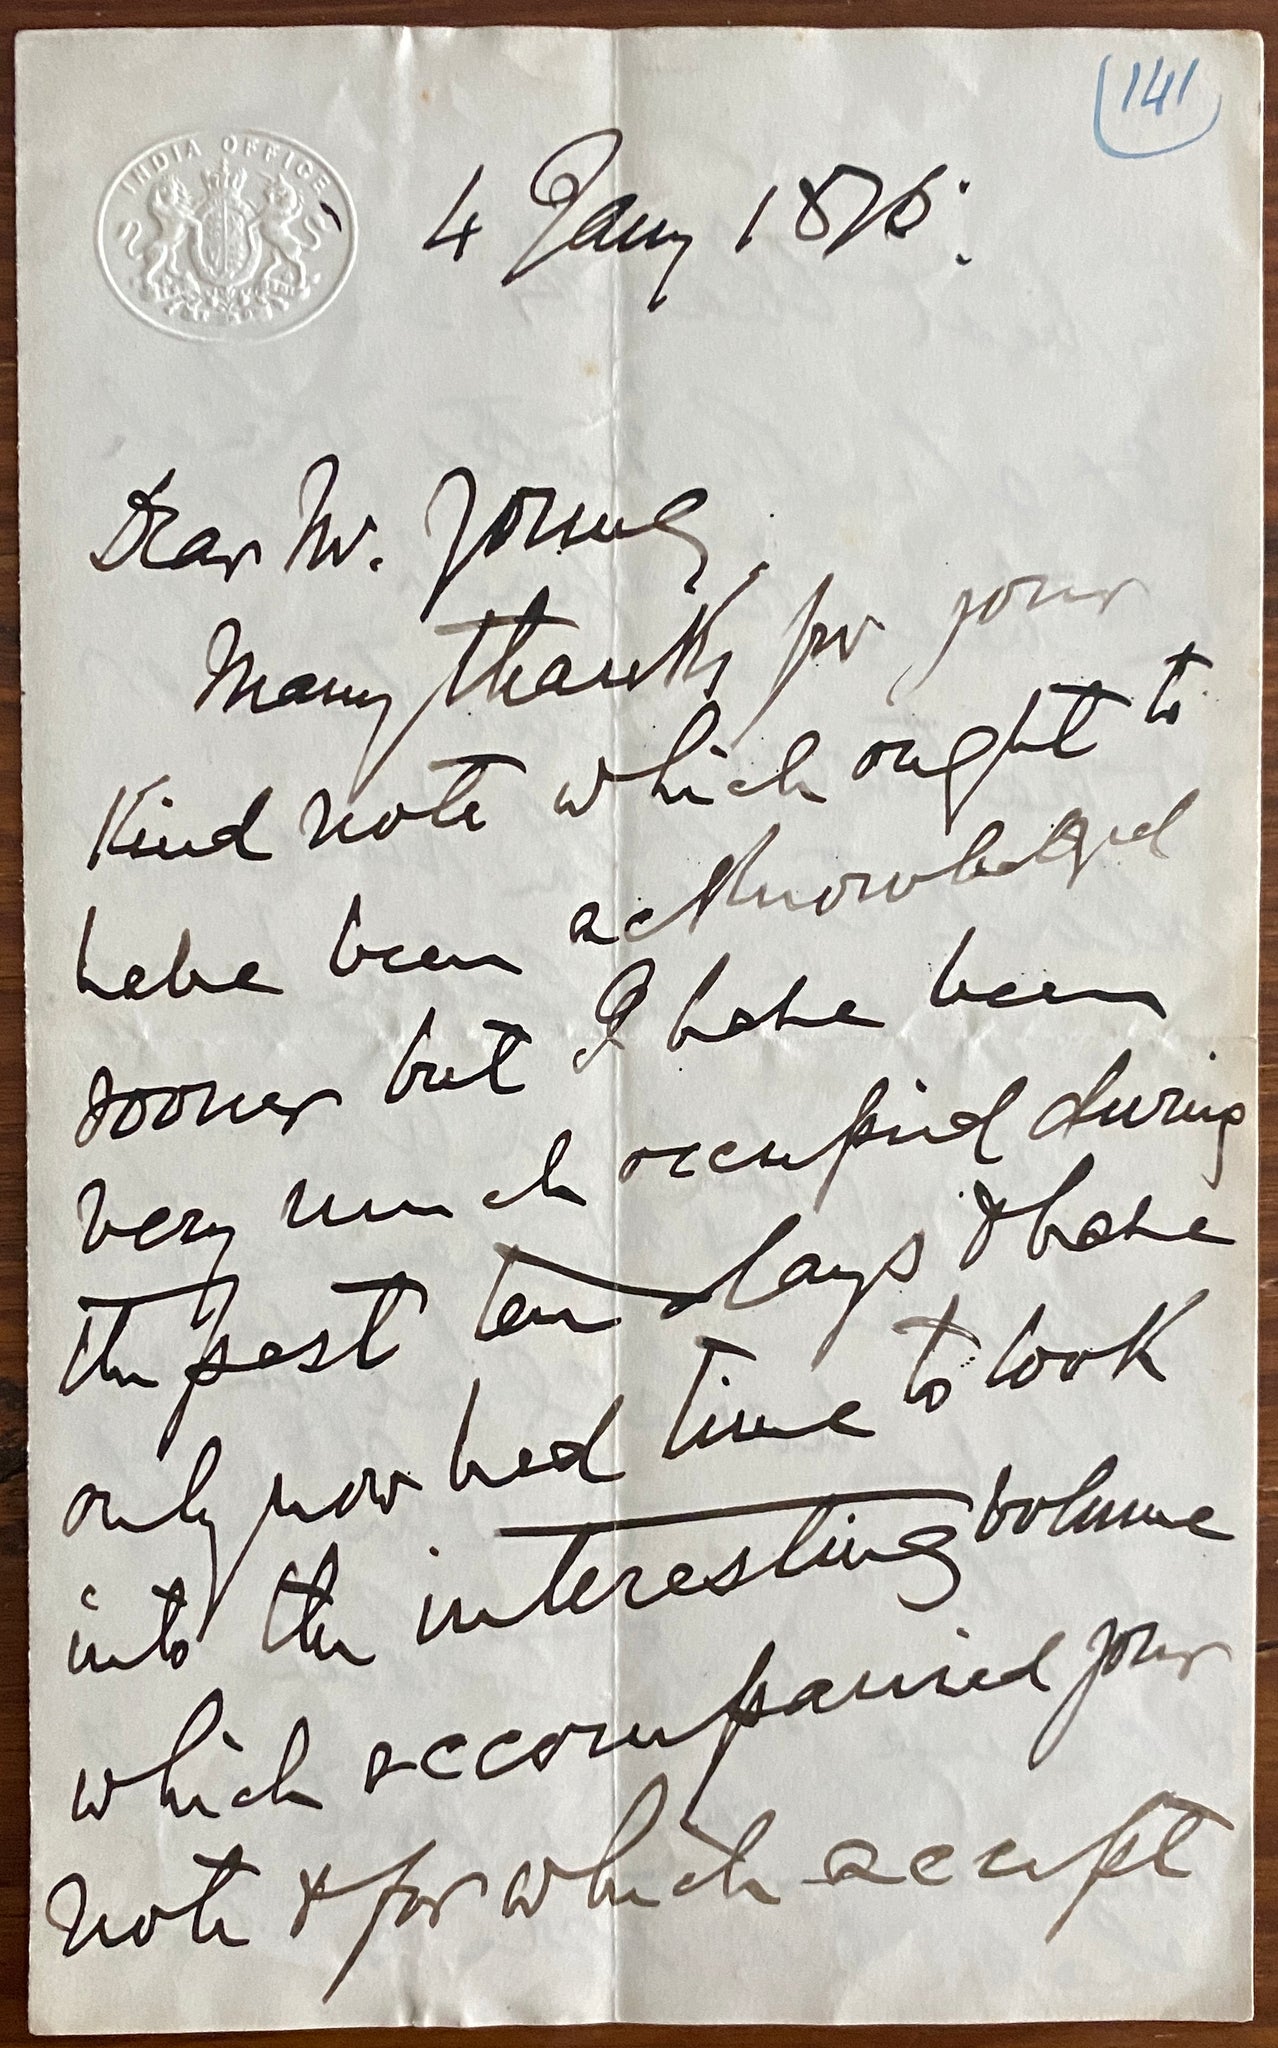 141
INDIA OFFICE
4 Jany 1875.
Dear Mr. Young,
Many thanks for your
kind note which ought to
have been acknowledged
sooner but I have been
very much occupied during
the past ten days & have
only now had time to look
into the interesting volume
which accompanied your
note & for which accept